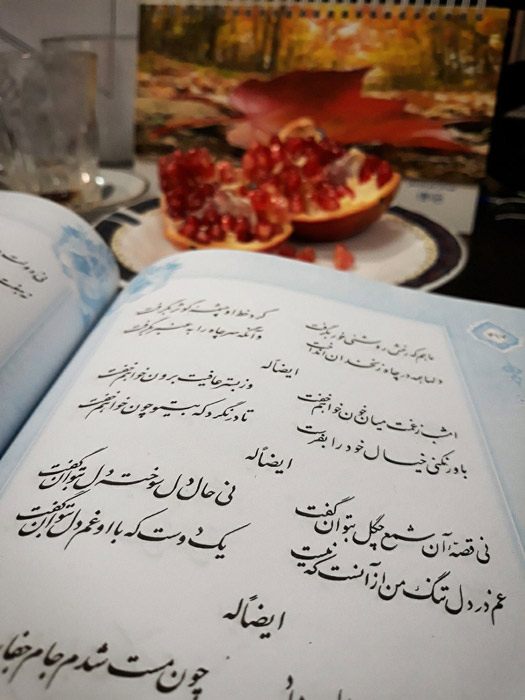 ماهم که رخش روشنی خور بگرفت گرد خط او چشمه کوثر بگرفت
دلها همه در چاه زنخدان انداخت وآنگه سر چاه را به عنبر بگرفت
ایضاً له
امشب ز غمت میان خون خواهم خفت وز بستر عافیت برون خواهم خفت
باور نکنی خیال خود را بفرست تا در نگرد که بیتو چون خواهم خفت
ایضاً له
نی قصهٔ آن شمع چگل بتوان گفت نی حال دل سوخته دل بتوان گفت
غم در دل تنگ من از آنست که نیست یک دوست که با او غم دل بتوان گفت
ایضاً له
چون مست شدم جام جفا